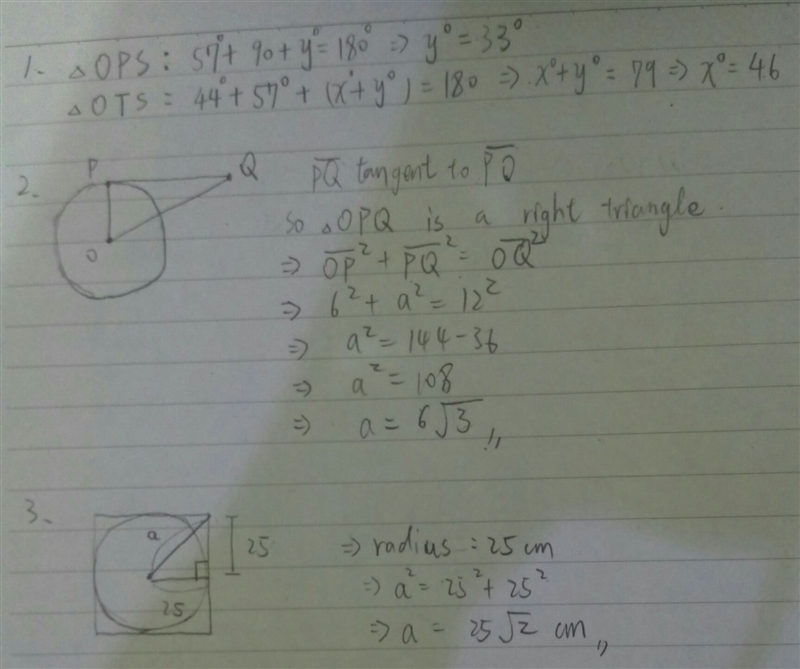 1. △OPS : 57°+ 90 + y° = 180° ⇒ y° = 33°
△OTS = 44° + 57° + (x°+ y°) = 180 ⇒ x°+ y° = 79 ⇒ x° = 46
2. P Q
O
P̅Q̅ tangent to P̅Q̅
so △OPQ is a right triangle.
⇒ O̅P̅² + P̅Q̅² = O̅Q̅²
⇒ 6² + a² = 12²
⇒ a² = 144 - 36
⇒ a² = 108
⇒ a = 6√3 〃
3.
a
25
25
⇒ radius : 25 cm
⇒ a² = 25² + 25²
⇒ a = 25√2 cm 〃